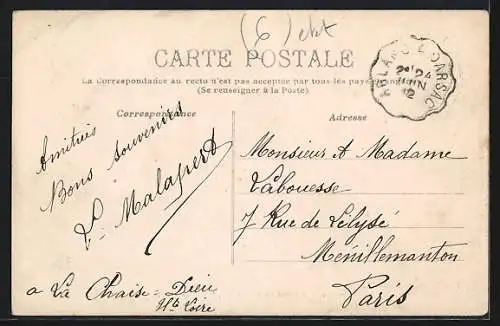 (6) etat
CARTE POSTALE
La Correspondance au recto n'est pas acceptée par tous les pays
(Se renseigner à la Poste)
ARLANC À DARSAC
24
JUIN
12
Correspondance
Adresse
Amitiés
Bons Souvenirs
Malapert
a La Chaise-Dieu
Hte Loire
Monsieur et Madame
Labouesse
7 Rue de L'élysé
Ménillemanton
Paris